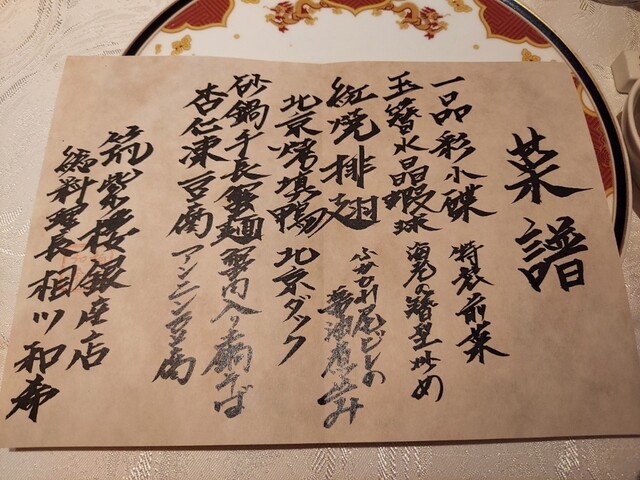 菜譜
一品彩小碟 特製前菜
玉簪水晶蝦球 海老の簪型炒め
紅焼排翅 ふかひれ尾ビレの
醤油煮込み
北京烤填鴨 北京ダック
砂鍋千長蟹麺 蟹肉入り土鍋そば
杏仁凍豆腐 アンニン豆腐
筑紫樓銀座店
総料理長 相川和希